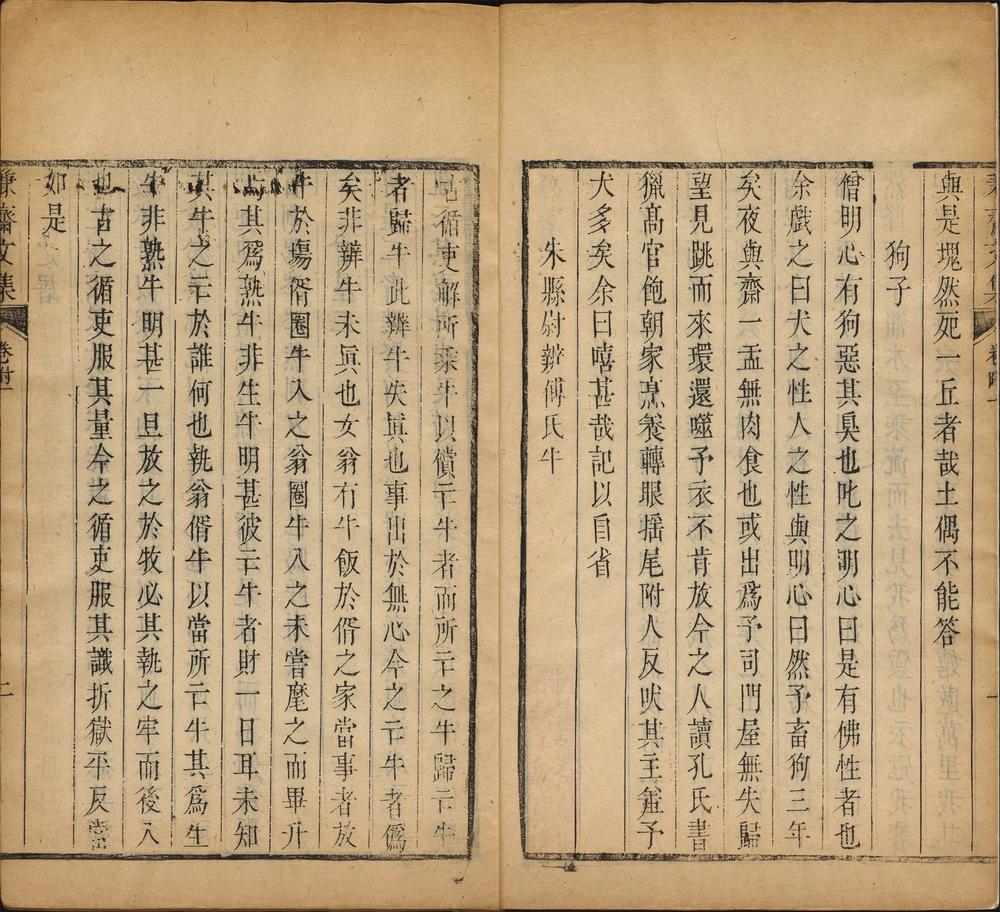 與是塊然死一丘者哉土偶不能答
狗子
僧明心有狗惡其臭也叱之明心曰是有佛性者也
余戲之曰犬之性人之性與明心曰然予畜狗三年
矣夜與齋一盂無肉食也或出爲予司門屋無失歸
望見跳而來環還噬予衣不肯放今之人讀孔氏書
獵高官飽朝家烹養轉眼揺尾附人反吠其主奎予
犬多矣余曰嘻甚哉記以自省
朱縣尉辨傅氏牛
循吏解所乘牛以償亡牛者而所亡之牛歸亡牛
者歸牛此辨牛失眞也事出於無心今之亡牛者僞
矣非辨牛未眞也女翁有牛飯於偦之家當事者放
牛於塲偦圈牛入之翁圈牛入之未嘗麾之而畢升
爲其爲熟牛非生牛明甚彼亡牛者財一日耳未知
其牛之亡於誰何也執翁偦牛以當所亡牛其爲生
牛非熟牛明甚一旦放之於牧必其執之牢而後入
也古之循吏服其量今之循吏服其識折獄平反當
如是
齋文集
卷附一
二